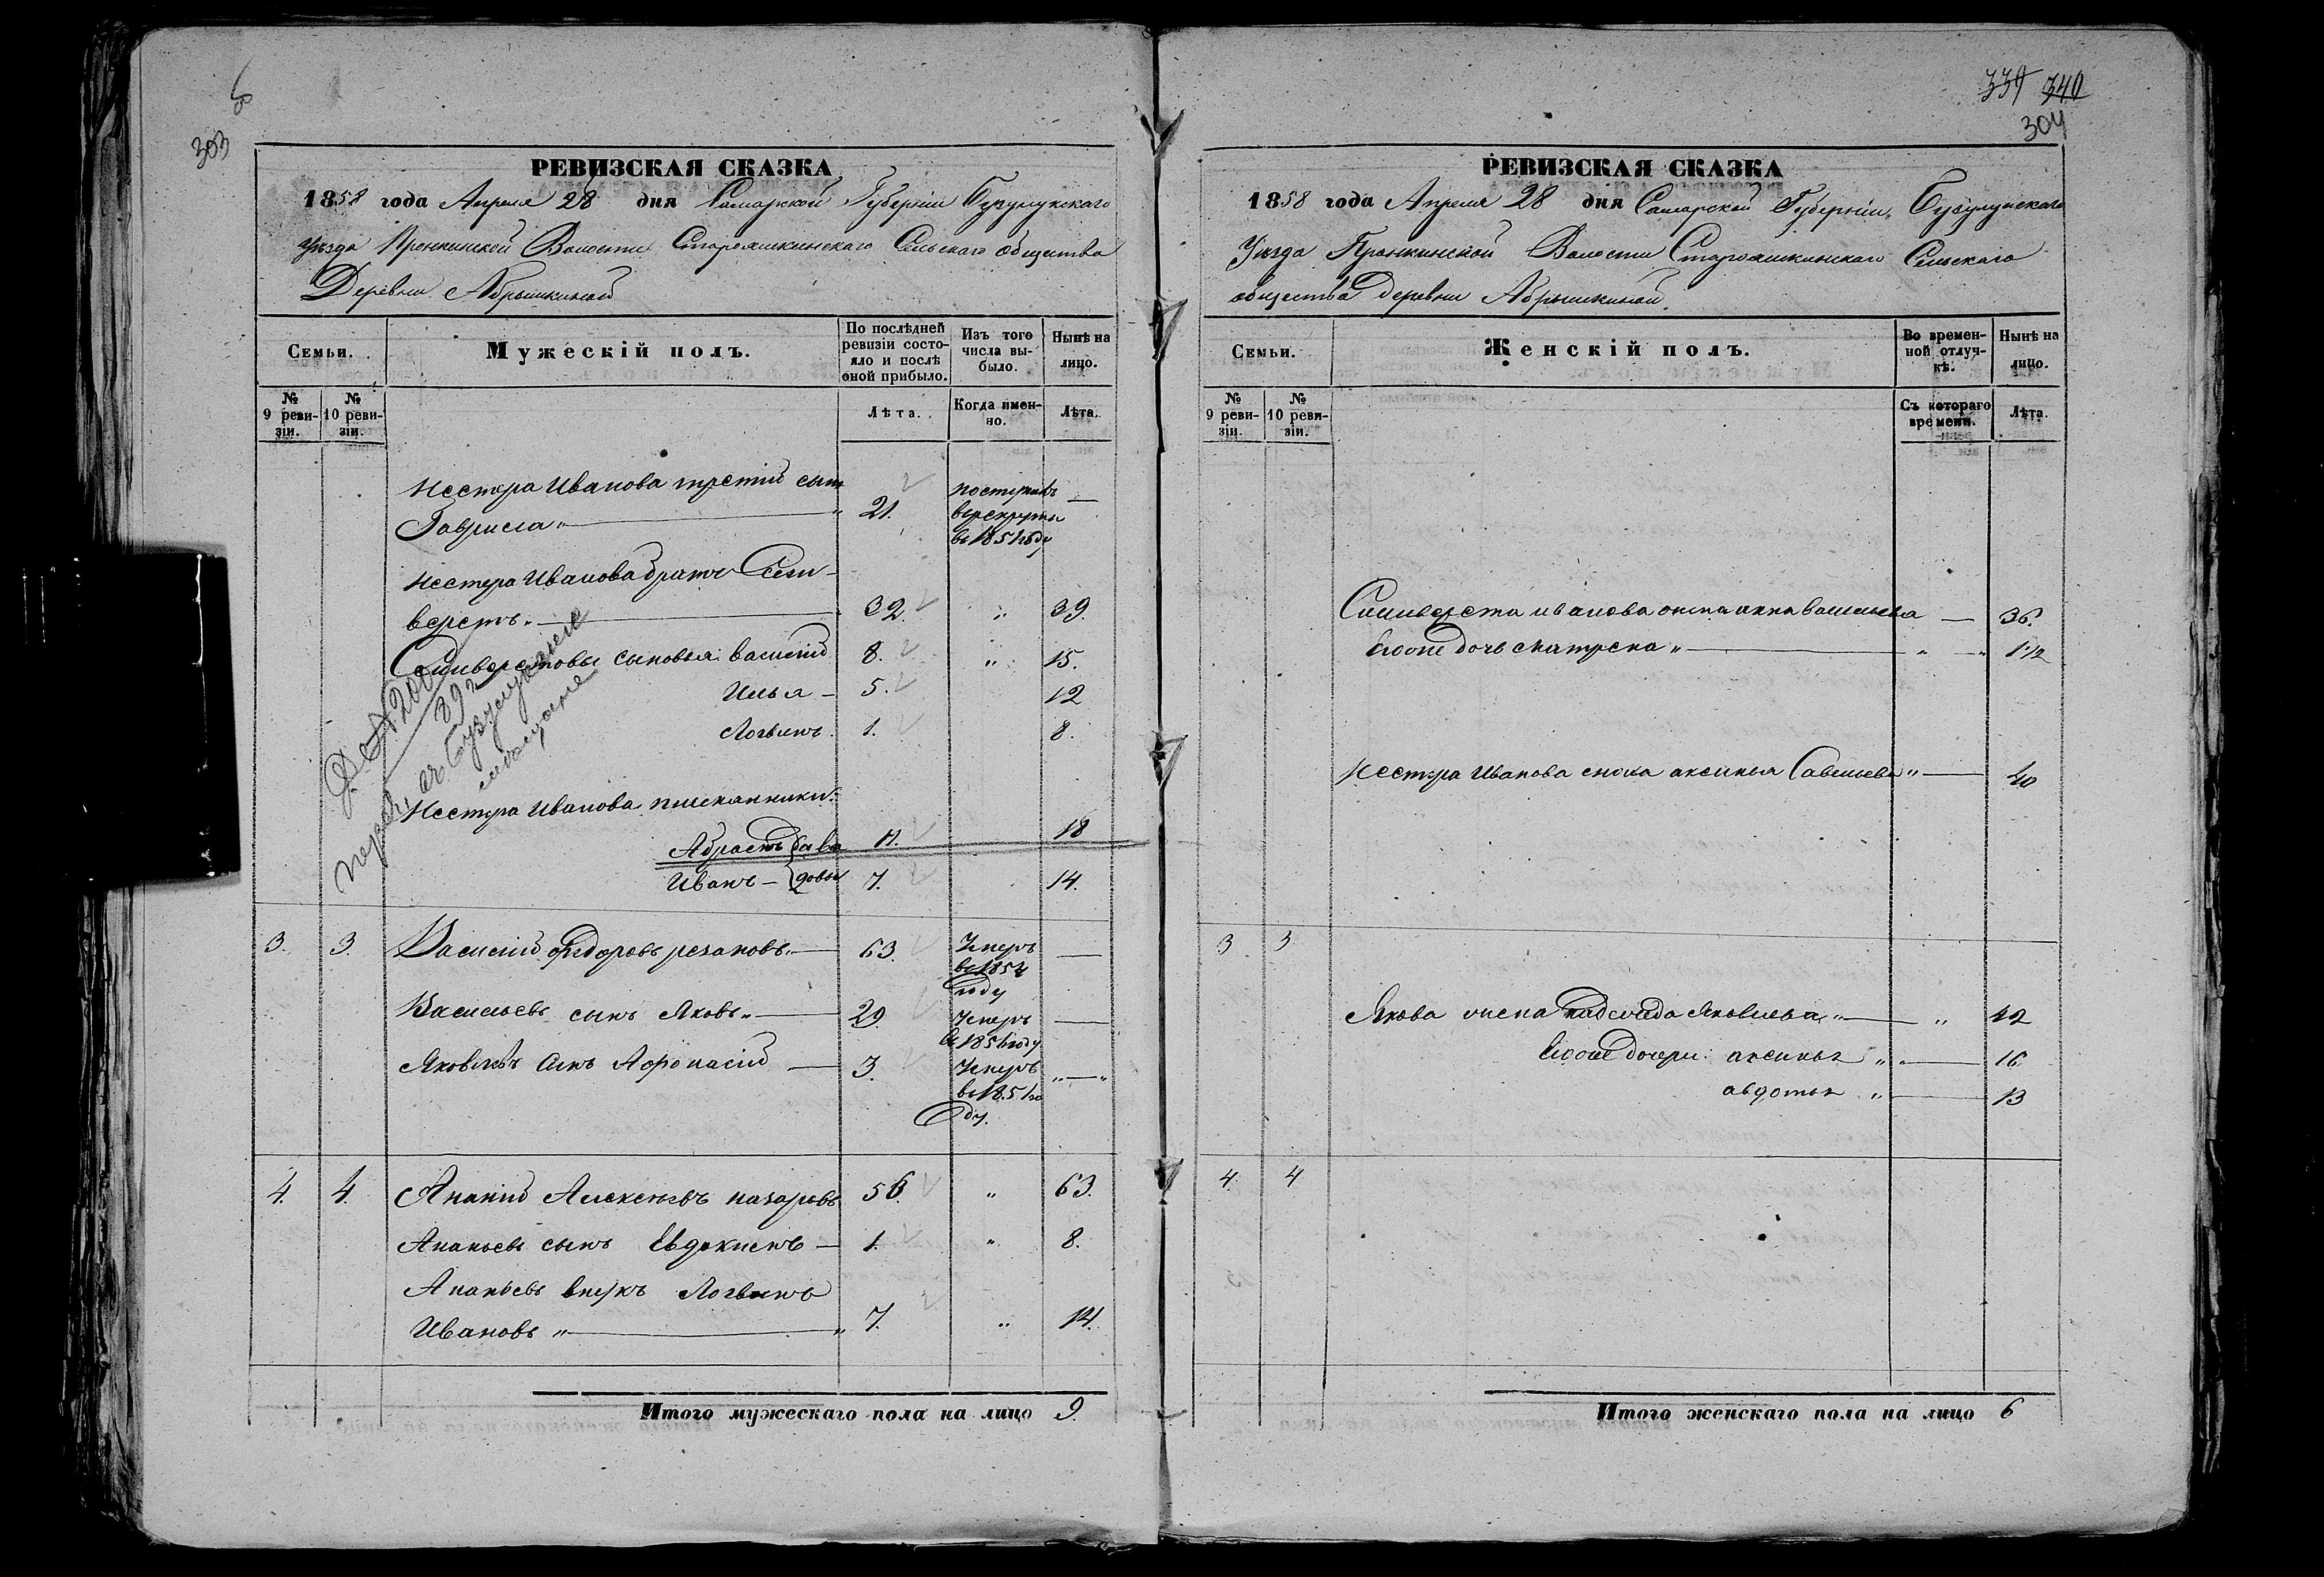 303
РЕВИЗСКАЯ СКАЗКА
1858 года Апреля 28 дня Самарской Губерніи Бузулукскаго
уѣзда Пронькинской Волости Старояшкинскаго Сельскаго общества
Деревни Абрышкиной
Семьи.
Мужескій полъ.
По послѣдней ревизіи состояло и послѣ оной прибыло.
Изъ того числа выбыло.
Нынѣ на лицо.
№ 9 ревизіи.
№ 10 ревизіи.
Лѣта.
Когда именно.
Лѣта.
Нестера Иванова третій сынъ
Гаврила 21. поступилъ в рекруты в 1851 году —
Нестера Иванова братъ Сели-
верстъ 32. " 39.
Селиверстовы сыновья Василій 8. " 15.
Илья — 5. 12
Логвинъ 1. 8.
Нестера Иванова племянники:
11. 18
Иванъ — 7. 14.
3. 3. Василій Федоровъ резановъ 63. Умеръ —
году
Васильевъ сынъ Яковъ 29. Умеръ в 1851 году —
Яковлевъ сынъ Афонасій — 3. Умеръ в 1851 году "—"
4. 4. Ананій Алексѣевъ назаровъ 56. " 63.
Ананьевъ сынъ Евдокимъ — 1. " 8.
Ананьевъ внукъ Логвинъ
Ивановъ " 7. " 14.
Итого мужескаго пола на лицо 9.
339 340
304
РЕВИЗСКАЯ СКАЗКА
1858 года Апреля 28 дня Самарской Губерніи, Бузулукскаго
Уѣзда Пронькинской Волости Старояшкинскаго Сельскаго
общества деревни Абрышкиной.
Семьи.
Женскій полъ.
Во временной отлучкѣ.
Нынѣ на лицо.
№ 9 ревизіи.
№ 10 ревизіи.
Съ котораго времени.
Лѣта.
Силиверста иванова жена анна васильева — 36.
Егоже дочь матрена " " 1 1/2
Нестера Иванова сноха аксинья Савельева " — 40
3 3
Якова жена Яковлева " — " 42
Егоже дочери аксинья " — 16
авдотья " — 13
4. 4
Итого женскаго пола на лицо 6